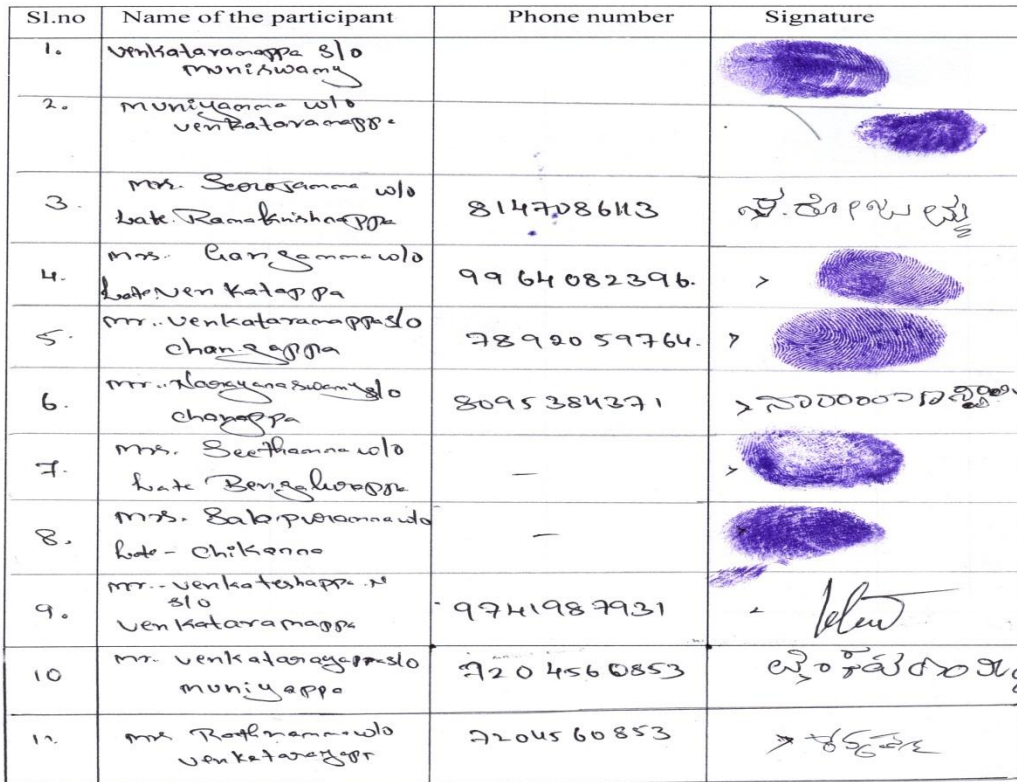 Sl.no Name of the participant Phone number Signature
1. Venkataramappa S/o
Muniswamy
2. Muniyamma w/o
Venkataramappa
3. Mrs. w/o
Late. Ramakrishnappa 8147086113
4. Mrs. Gangamma w/o
Late. Venkatappa 9964082396.
5. Mr.. Venkataramappa S/o
Changappa 7892059764.
6. Mr.. Narayanaswamy S/o
8095384371
7. Mrs. Seethamma w/o
Late –
8. Mrs. w/o
Late - Chikanna –
9. Mr.- Venkateshappa .N
S/o
Venkataramappa 9741987931
10 Mr. Venkatarayappa S/o
Muniyappa 7204560853
11. Mrs Rathnamma w/o
Venkatarayappa 7204560853